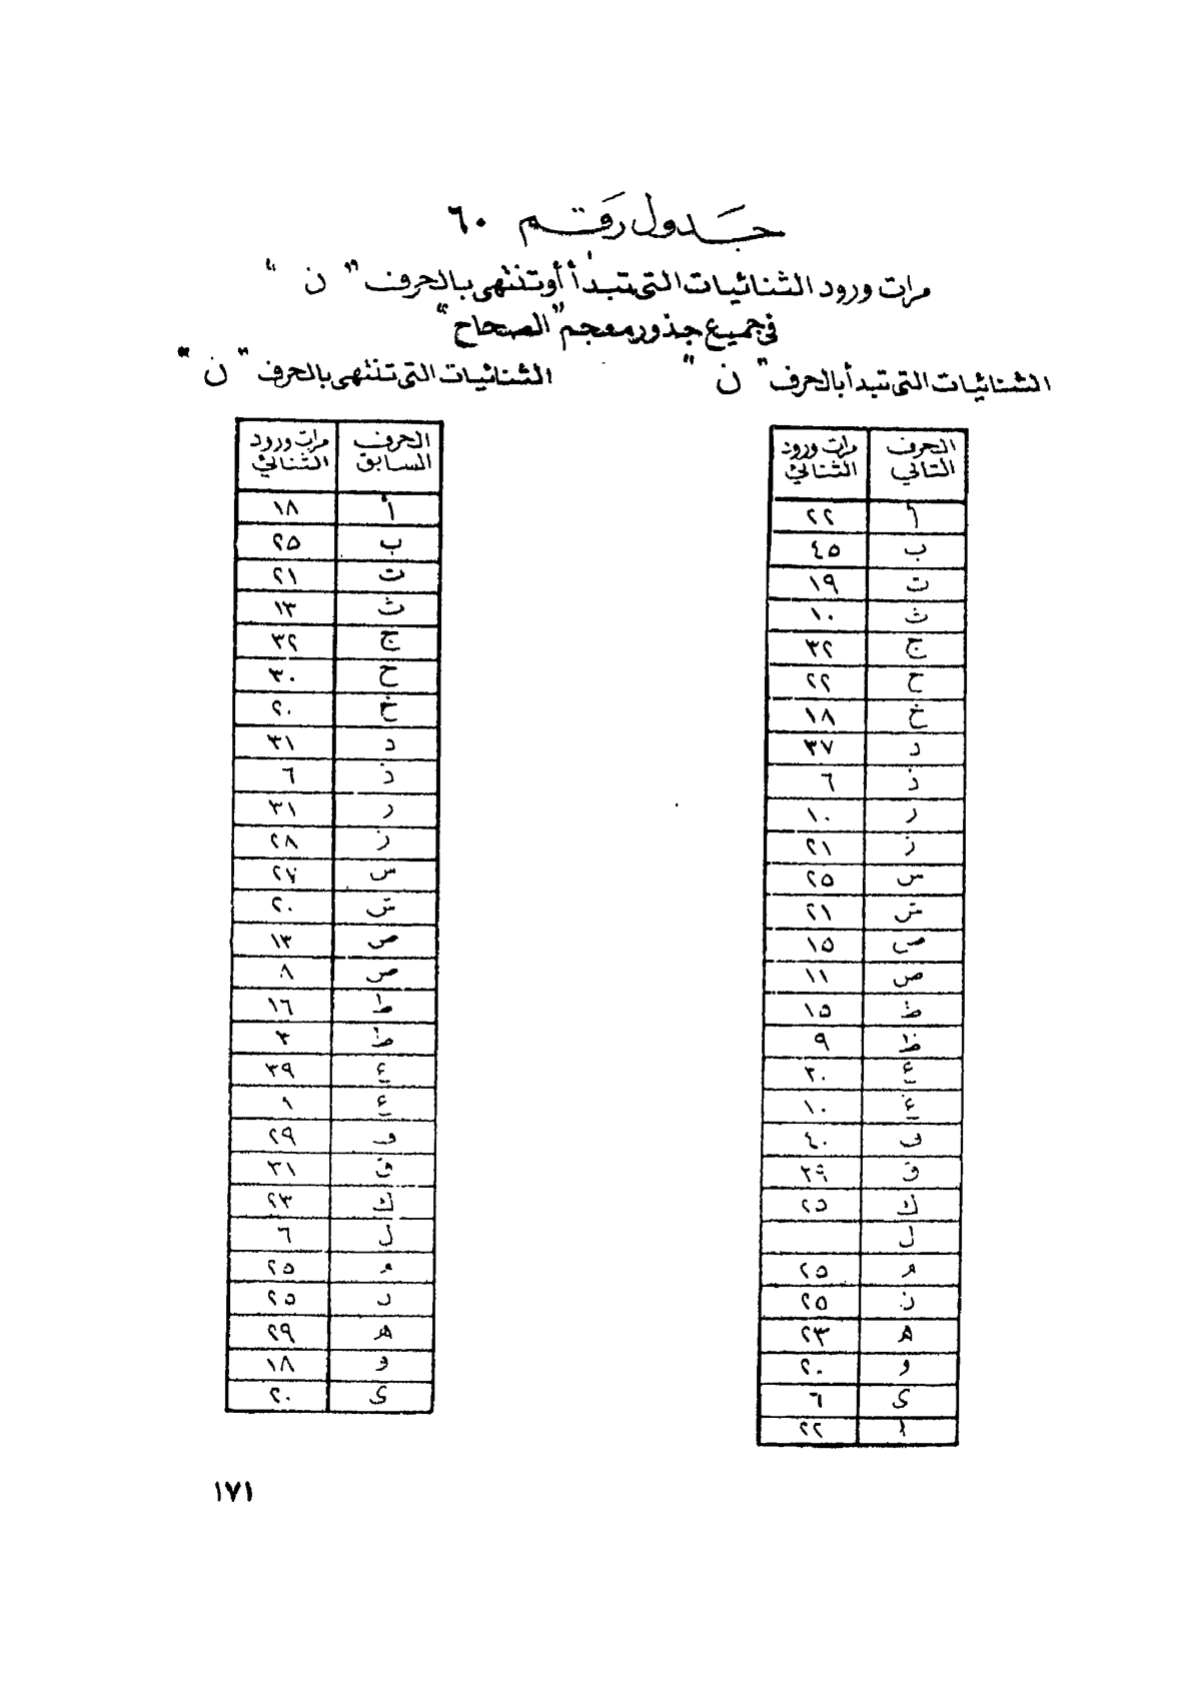 جدول رقم ٦٠
مرات ورود الثنائيات التى تبدأ أو تنتهى بالحرف "ن"
فى جميع جذور معجم "الصحاح"
الثنائيات التى تبدأ بالحرف "ن"
الحرف التالي مرات ورود الثنائي
أ ٢٢
ب ٤٥
ت ١٩
ث ١٠
ج ٣٢
ح ٢٢
خ ١٨
د ٣٧
ذ ٦
ر ١٠
ز ٢١
س ٢٥
ش ٢١
ص ١٥
ض ١١
ط ١٥
ظ ٩
ع ٣٠
غ ١٠
ف ٤٠
ق ٣٩
ك ٢٥
ل
م ٢٥
ن ٢٥
ه ٢٣
و ٢٠
ى ٦
ا ٢٢
الثنائيات التى تنتهى بالحرف "ن"
الحرف السابق مرات ورود الثنائي
أ ١٨
ب ٢٥
ت ٢١
ث ١٣
ج ٣٢
ح ٣٠
خ ٢٠
د ٣١
ذ ٦
ر ٣١
ز ٢٨
س ٢٧
ش ٢٠
ص ١٣
ض ٨
ط ١٦
ظ ٣
ع ٣٩
غ ١
ف ٢٩
ق ٣١
ك ٢٣
ل ٦
م ٢٥
ن ٢٥
ه ٢٩
و ١٨
ى ٢٠
١٧١